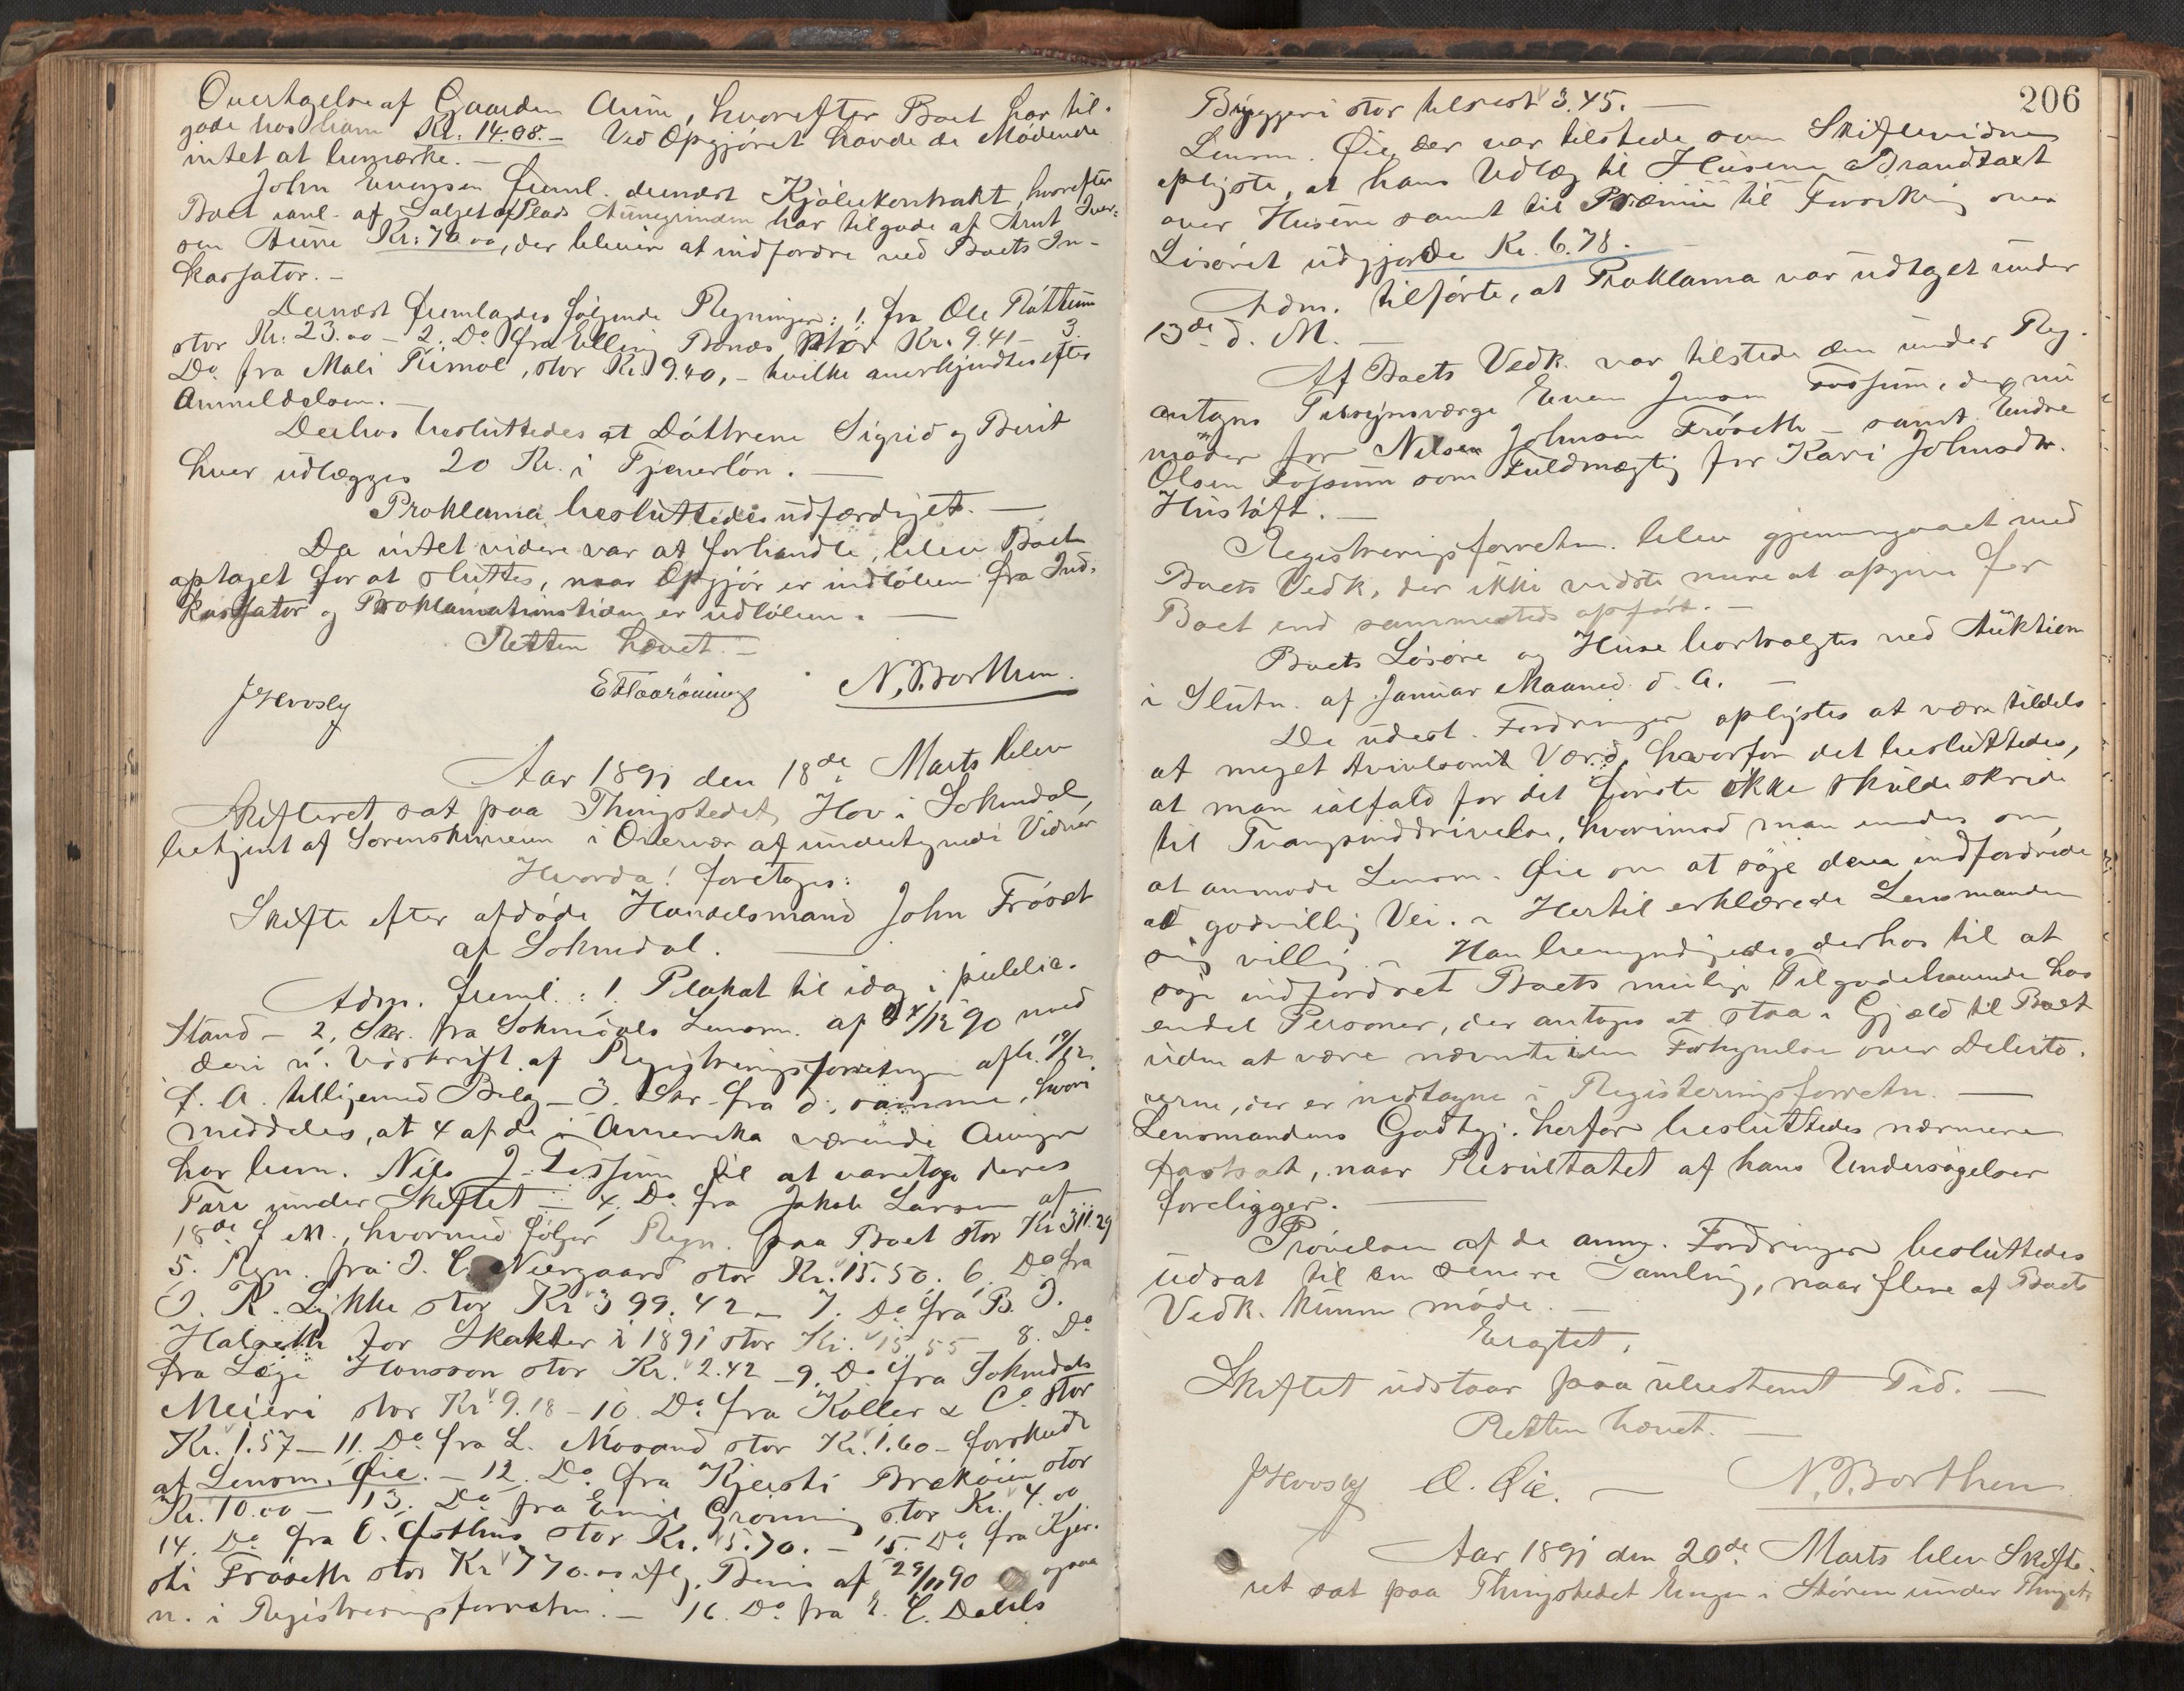 Overtagelse af Gaarden Aune, hvorefter Boet har til-
gode hos ham Kr. 14.08. - Ved Opgjöret havde de Mödende
intet at bemærke. -
John Evensen freml. dernæst Kjöbekontrakt, hvorefter
Boet ianl. af Salget af Plads Aunegrinden har tilgode af Arnt Iver-
sen Aune Kr. 70.00, der bliver at indfordre ved Boets In-
kassator. -
Dernæst fremlagdes fölgende Regninger: 1. fra Ole
stor Kr. 23.00 - 2. Do fra Elling Bonæs stor Kr. 9.41 - 3.
Do fra Mali, stor Kr. 9.40, - hvilke anerkjendtes efter
Anmeldelsen. -
Derhos besluttedes at Döttrene Sigrid og Berit
hver udlægges 20 Kr. i Tjenerlön. -
Proklama besluttedes udfærdiget. -
Da intet videre var at forhandle, blev Boet
optaget for at sluttes, naar Opgjör er indlöben fra Ind-
kassator og Proklamationstiden er udlöben. -
Retten hævet. -
N. Borthen.
Aar 1891 den 18de Marts blev
Skifteret sat paa Thingstedet Hov i Soknedal,
betjent af Sorenskriveren i Overvær af undertegnede Vidner
Hvorda! foretoges:
Skifte efter afdöde Handelsmand John Fröset
af Soknedal. -
Adm. freml.: 1. Plakat til idag i publice.
Stand - 2, Skr. fra Soknedals Lensm. af 24/12 90 med
deri n. Udskrift af Registreringsforretningen afh. 19/12
f. A. tilligemed Bilag - 3. Skr. fra d. samme, hvori
meddeles, at 4 af de i Amerika værende Arvinger
har bem. Nils J. Fossum til at varetage deres
Tarv under Skiftet - 4. Do fra Jakob Larsen af
18de f. M., hvormed fölger Regn. paa Boet stor Kr. 311.29
5. Regn. fra J. C. Neergaard stor Kr. 15.50. 6. Do fra
J. K. Lykke stor Kr 399.42 - 7. Do fra B. J.
Halseth for Skatter i 1891 stor Kr. 15.55 8. Do
fra Læge Hansson stor Kr. 2.42 - 9. Do fra Soknedals
Meieri stor Kr 9.18 - 10. Do fra Koller & Co stor
Kr. 1.57 - 11. Do fra L. Mosand stor Kr. 1.60 - forskudt
af Lensm. Øie. - 12. Do fra Kjersti Bræköien stor
Kr. 10.00 - 13. Do fra Emil Grönning stor Kr. 4.00
14. Do fra O. Østhus stor Kr. 5.70. - 15. Do fra Kjer-
sti Fröseth stor Kr 770.00 iflg. Bevis af 29/11 90 ogsaa
n. i Registreringsforretn. - 16. Do fra E. C. Dahls
206
Bryggeri stor tilrest 3.45. -
Lensm. Øie, der var tilstede som Skiftevidne
oplyste, at hans Udlæg til Husene Brandtaxt
over Husene samt til Præmie til Forsikring over
Lösöret udgjorde Kr. 6.78. -
Adm. tilförte, at Proklama var udtaget under
13de d. M. -
Af Boets Vedk. var tilstede den under Reg.
antagne Tilsynsværge Even Jensen Fossum, der nu
möder for Nilsen Johnsen Fröseth - samt Endre
Olsen Fossum som Fuldmægtig for Kari Johnsdtr.
Hustöft. -
Registreringsforretn. blev gjennemgaaet med
Boets Vedk, der ikke vidste mere at opgive for
Boet end sammesteds opfört. -
Boets Lösöre og Huse bortsolgtes ved Auktion
i Slutn. af Januar Maaned d. A. -
De udest. Fordringer oplystes at være tildels
af meget tvivlsomt Værd, hvorfor det besluttedes,
at man ialfald for det förste ikke skulde skride
til Tvangsinddrivelse, hvorimod man enedes om,
at anmode Lensm. Øie om at söge dem indfordrede
ad godvillig Vei. - Hertil erklærede Lensmanden
sig villig. - Han bemyndigedes derhos til at
söge indfordret Boets mulige Tilgodehavende hos
endel Personer, der antages at staa i Gjæld til Boet
uden at være nævnte i den Fortegnelse over Debito-
rerne, der er indtagne i Registeringsforretn. -
Lensmandens Godtgj. herfor besluttedes nærmere
fastsat, naar Resultatet af hans Undersögelser
foreligger. -
Prövelsen af de anm. Fordringer besluttedes
udsat til en senere Samling, naar flere af Boets
Vedk. kunne möde. -
Eragtet,
Skiftet udstaar paa ubestemt Tid. -
Retten hævet. -
O. Øie. - N. Borthen
Aar 1891 den 20de Marts blev Skifte-
ret sat paa Thingstedet Engen i Stören under Thinget